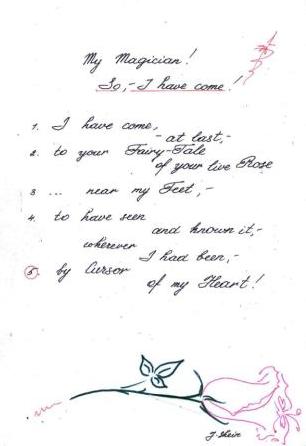 My Magician!
So,- I have come!
1. I have come,
- at last,-
2. to your Fairy-Tale
of your live Rose
3 ... near my Feet,-
4. to have seen
and known it,-
wherever
I had been,-
5. by Cursor
of my Heart!